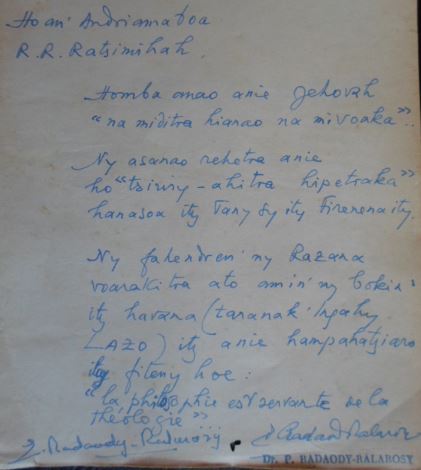 Ho an' Andriamatoa
R. R. Ratsimihah.
Homba anao anie Jehovah
"na miditra hianao na mivoaka"..
Ny asanao rehetra anie
ho "tsiriry-ahitra hipetraka"
hanasoa ity Tany sy ity Firenena ity.
Ny fahendren' ny Razana
voarakitra ato amin' ny bokin'
ity havana (taranak' Ingahy
LAZO) ity anie hampahatsiaro
ilay fiteny hoe:
"la philosophie est servante de la
théologie"
Radaody-Ralarosy
Dr. P. RADAODY-RALAROSY